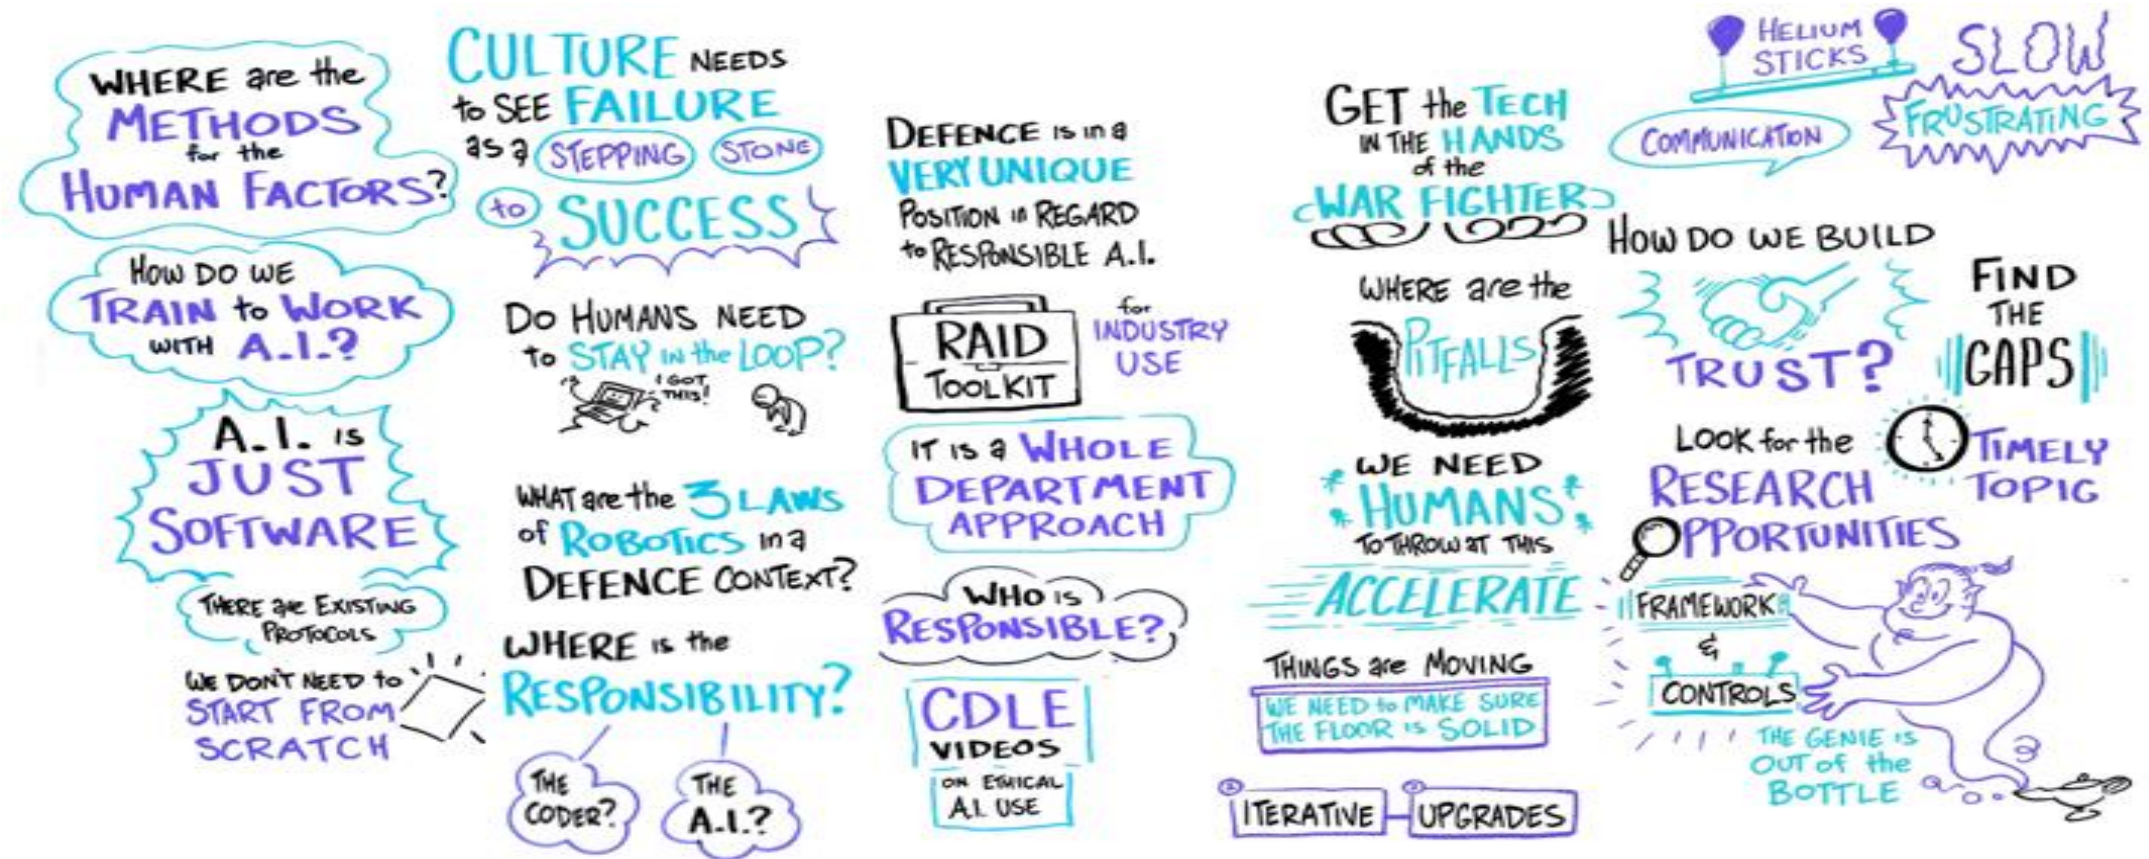 WHERE are the
METHODS
for the
HUMAN FACTORS?
HOW DO WE
TRAIN to WORK
WITH A.I.?
A.I. IS
JUST
SOFTWARE
THERE are EXISTING
PROTOCOLS
WE DON'T NEED to
START FROM
SCRATCH
CULTURE NEEDS
to SEE FAILURE
as a STEPPING STONE
to SUCCESS
DO HUMANS NEED
to STAY IN the LOOP?
I GOT
THIS!
WHAT are the 3 LAWS
of ROBOTICS in a
DEFENCE CONTEXT?
WHERE is the
RESPONSIBILITY?
THE
CODER?
THE
A.I.?
DEFENCE is in a
VERY UNIQUE
POSITION in REGARD
to RESPONSIBLE A.I.
RAID
TOOLKIT
for
INDUSTRY
USE
IT IS a WHOLE
DEPARTMENT
APPROACH
WHO IS
RESPONSIBLE?
CDLE
VIDEOS
ON ETHICAL
A.I. USE
GET the TECH
IN THE HANDS
of the
WAR FIGHTER
WHERE are the
PITFALLS
WE NEED
HUMANS
TO THROW at THIS
ACCELERATE
THINGS are MOVING
WE NEED to MAKE SURE
THE FLOOR IS SOLID
ITERATIVE UPGRADES
HELIUM
STICKS
SLOW
COMMUNICATION
FRUSTRATING
HOW DO WE BUILD
TRUST?
FIND
THE
GAPS
LOOK for the
RESEARCH
OPPORTUNITIES
TIMELY
TOPIC
FRAMEWORK
&
CONTROLS
THE GENIE IS
OUT of the
BOTTLE